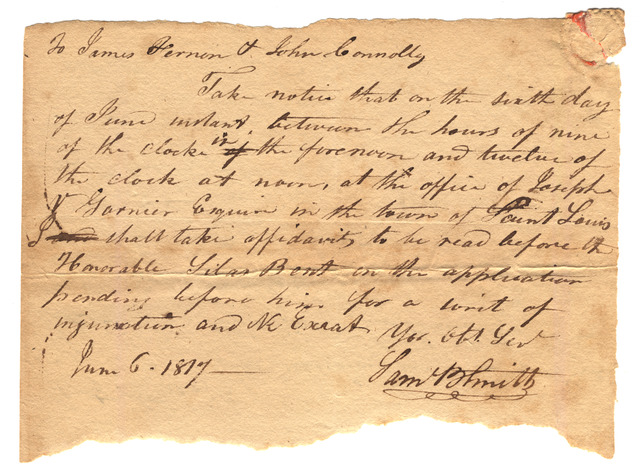 To James Vernon & John Connolly
Take notice that on the sixth day
of June instant, between the hours of nine
of the clocke in the forenoon and twelve of
the clock at noon, at the office of Joseph
V Garnier Esquire in the town of Saint Louis
I shall take affidavits to be read before the
Honorable Silas Bent in the application
pending before him for a writ of
injunction and Ne Exeat
Yor. Obt. Sevt
June 6. 1817
Saml B Smith